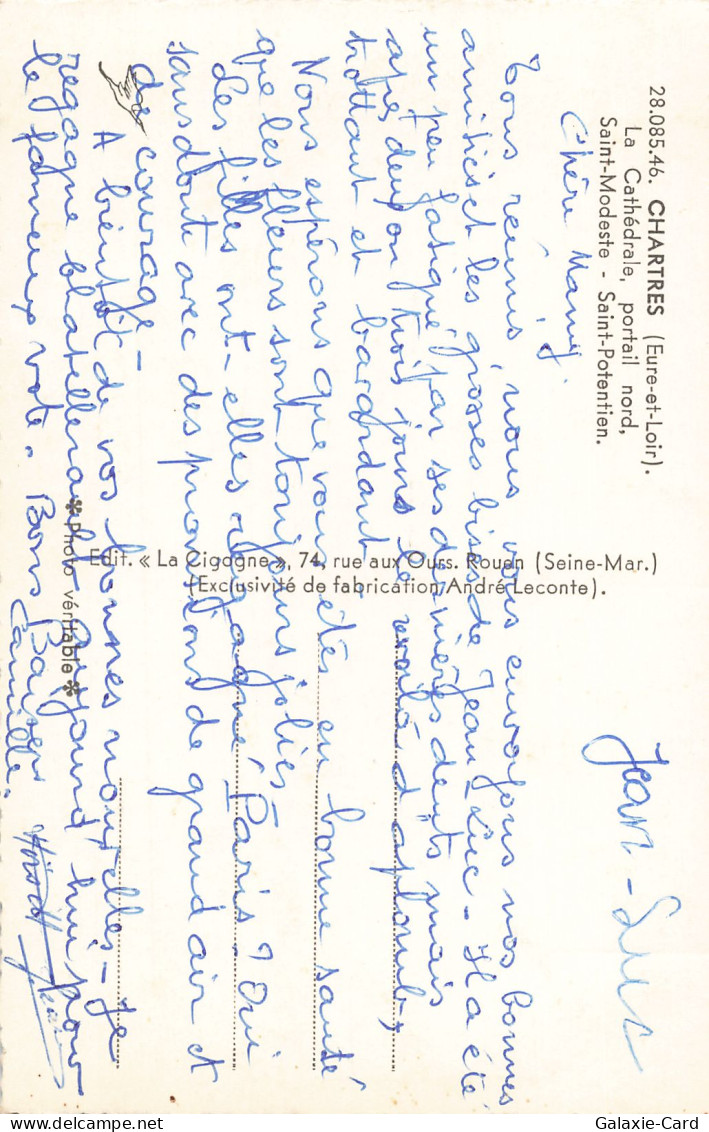 28.085.46. CHARTRES (Eure-et-Loir).
La Cathédrale, portail nord,
Saint-Modeste - Saint-Potentien.
Chère Mamy.
Jean-Luc
Tous réunis, nous vous envoyons nos bonnes
amitiés et les grosses bises de Jean-Luc - Il a été
un peu fatigué par ses dernières dents mais
après deux on trois jours le voilà d'aplomb,
trottant et bavardant
Nous espérons que vous êtes en bonne santé
que les fleurs sont toujours jolies
Les filles ont-elles regagné Paris? Oui
sans doute avec des provisions de grand air et
de courage -
A bientôt de vos bonnes nouvelles - Je
regagne Chatellerault aujourd'hui pour
le fameux vote. Bons Baisers
Camille.
Edit. « La Cigogne », 74, rue aux Ours. Rouen (Seine-Mar.)
(Exclusivité de fabrication André Leconte).
✻ Photo véritable ✻
Galaxie-Card